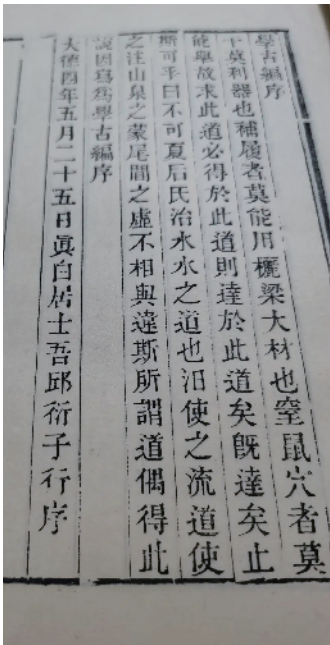 學古編序
干莫利器也補履者莫能用欐梁大材也窒鼠穴者莫
能舉故求此道必得於此道則達於此道矣旣達矣止
斯可乎曰不可夏后氏治水水之道也汩使之流道使
之注山泉之蒙尾閭之虛不相與違斯所謂道偶得此
說因寫爲學古編序
大德四年五月二十五日眞白居士吾邱衍子行序